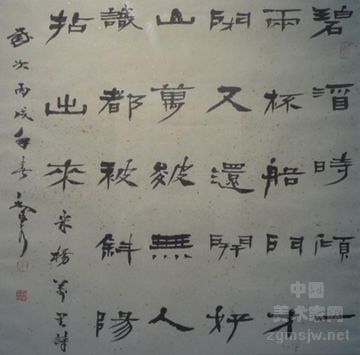 碧酒時傾一
兩杯船門才
閉又還開好
山萬皺無人
識都被斜陽
拈出來
宋楊萬里詩
歲次丙戌年春
中国
美术家网
zgmsjw.net